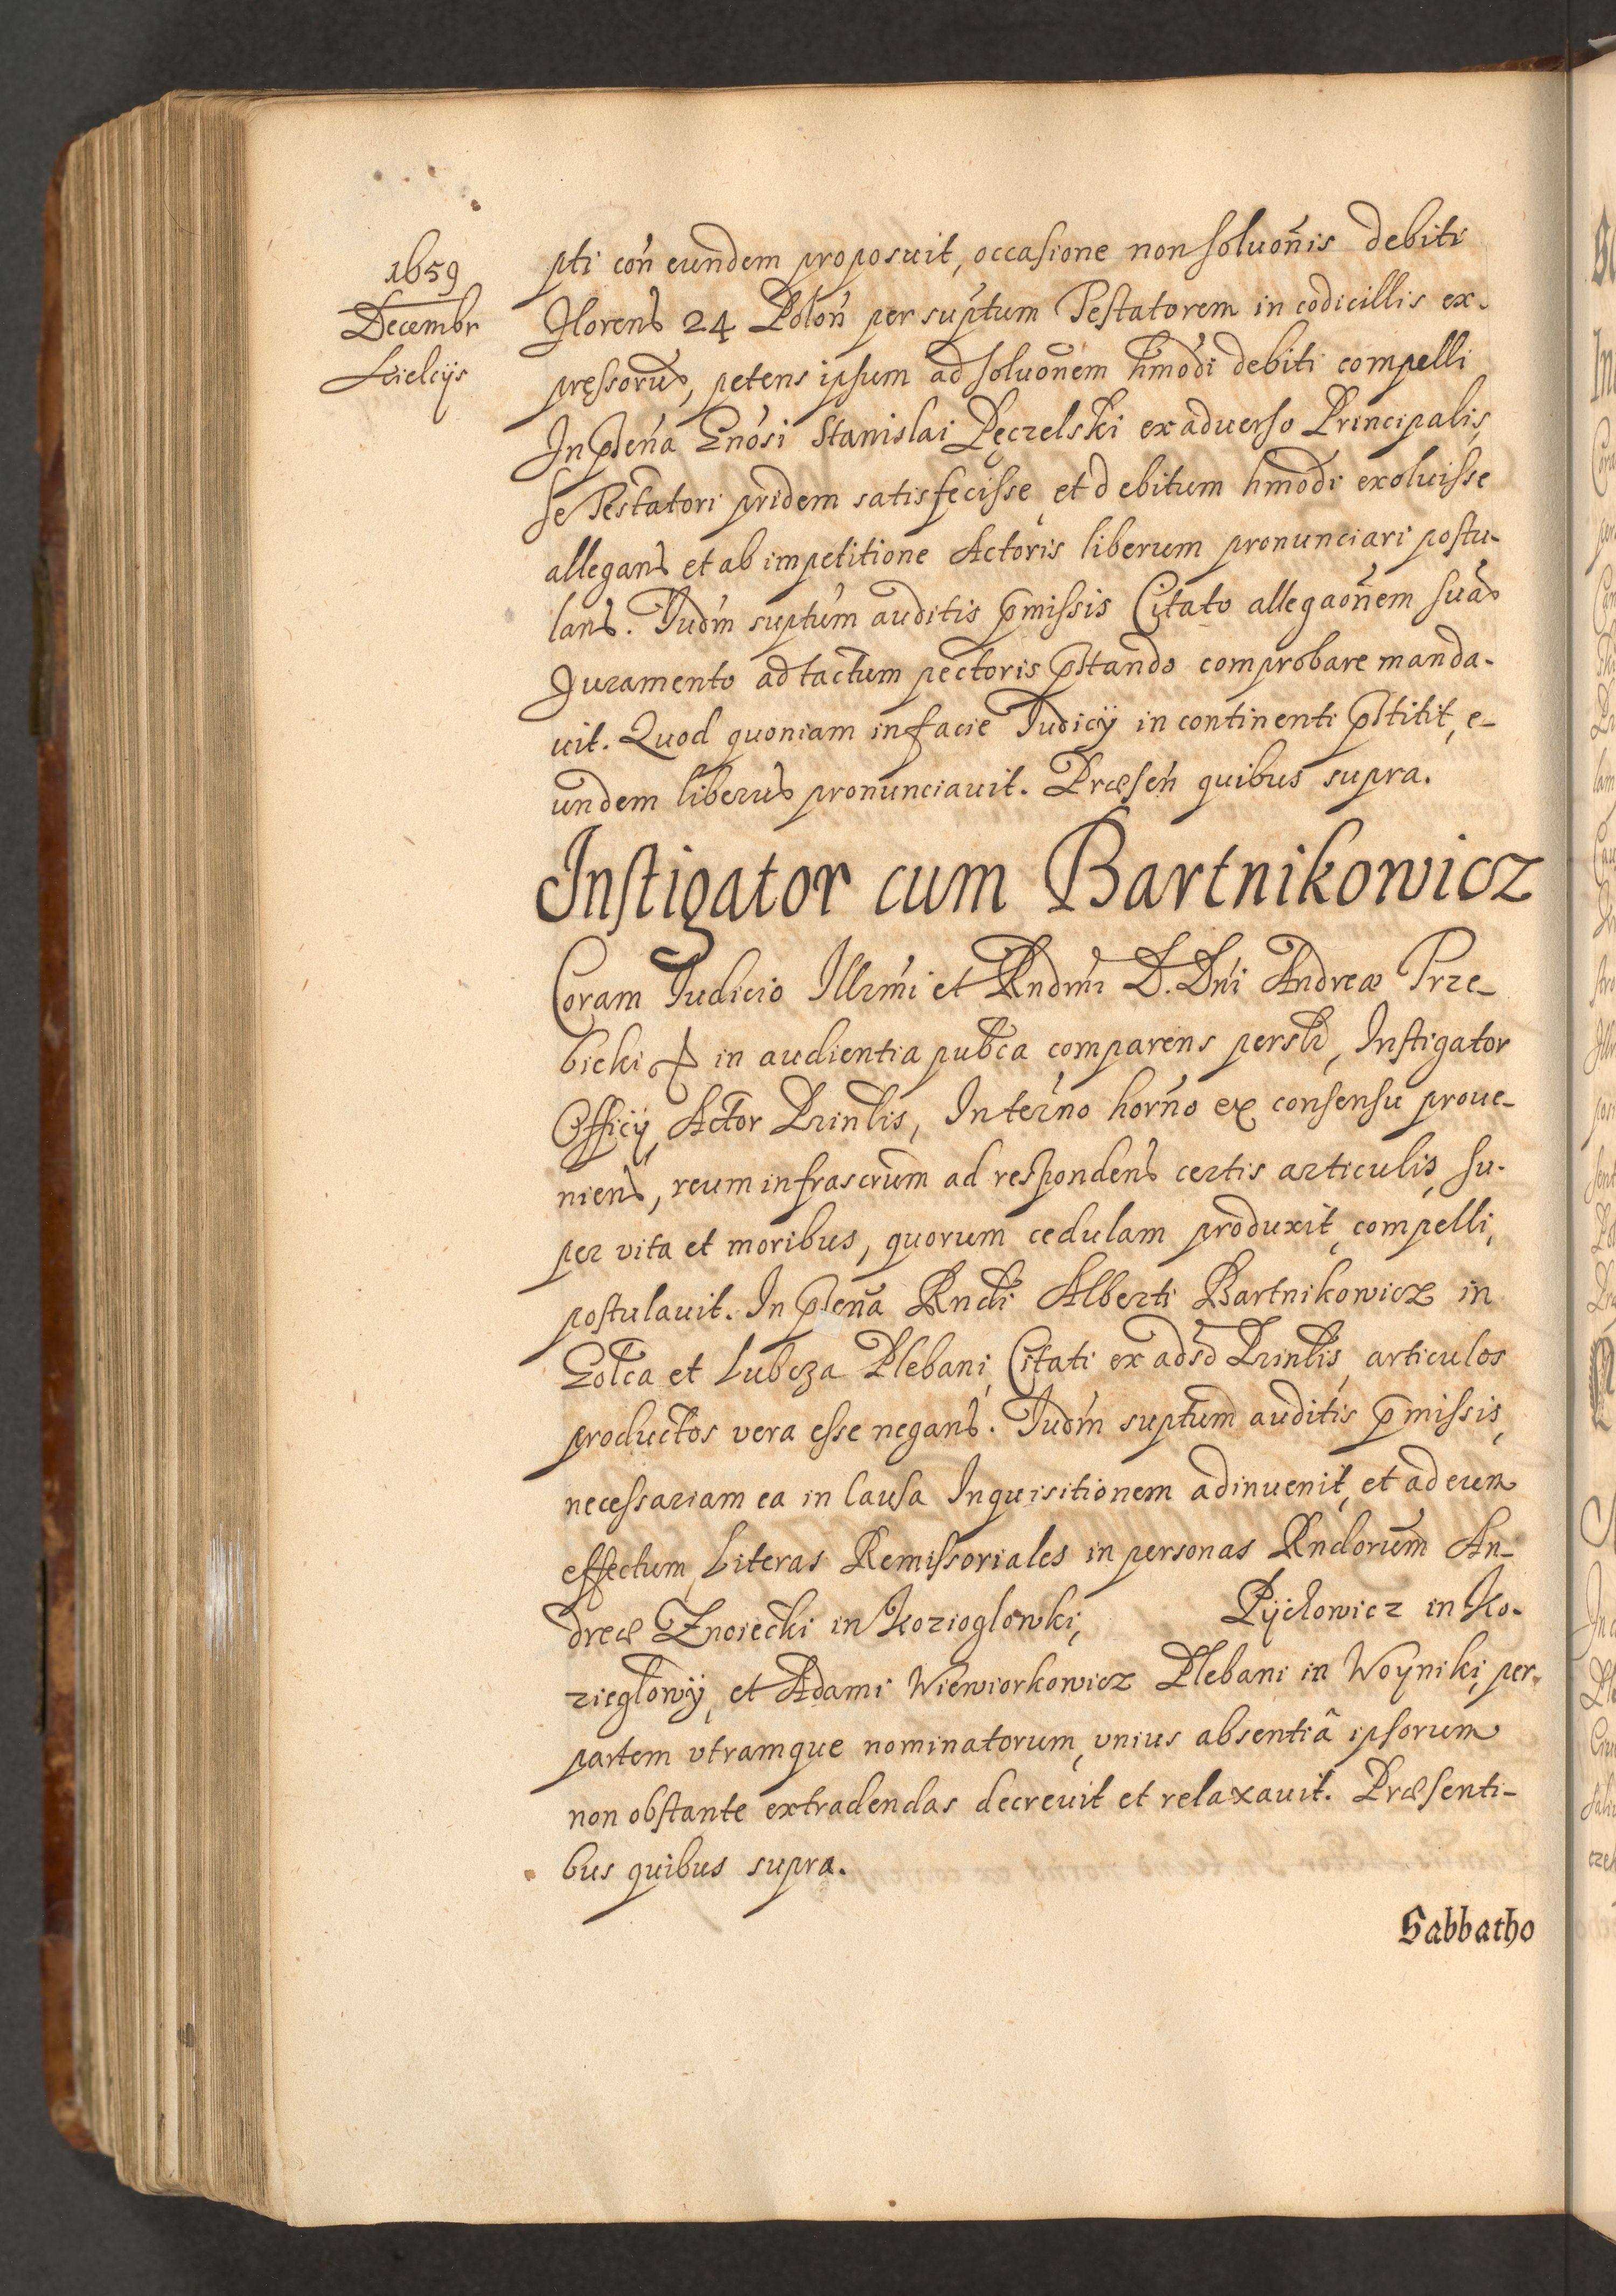 1659
Decembr
Kielcijs
pti con̄ eundem proposuit, occasione non soluōnis debiti
Floren̄ 24 Polon̄ per suptum Testatorem in codicillis ex-
pressoru̅, petens ipsum ad soluōnem hmōdi debiti compelli
In pn̄tia Gnōsi Stanislai Pęczelski ex aduerso Principalis,
se Testatori pridem satisfecisse, et debitum hmōdi exoluisse
allegan̄ et ab impetitione Actoris liberum pronunciari postu-
lan̄. Iudm̄ suptum auditis p̄missis Citato allegaōnem suā
Iuramento ad tactum pectoris p̄stando comprobare manda-
uit. Quod quoniam in facie Iudicij in continenti p̄stitit, e-
undem liberu̅ pronunciauit. Præsen̄ quibus supra.
Instigator cum Bartnikowicz
Coram Iudicio Illrm̄i et Rndm̄i D. Dn̄i Andreæ Trze-
bicki in audientia pubca comparens persl̄r, Instigator
Officij, Actor Prinlis, In terno horn̄o ex consensu proue-
nien̄, reum infrascrium ad responden̄ certis articulis, su-
per vita et moribus, quorum cedulam produxit, compelli,
postulauit. In pn̄tia Rndi Alberti Bartnikowicz in
Golca et Lubcza Plebani, Citati ex adso Prinlis, articulos
productos vera esse negan̄. Iudm̄ suptum auditis p̄missis,
necessariam ea in Causa Inquisitionem adinuenit, et ad eum
effectum, Literas Remissoriales in personas Rndorum An-
dreæ Znoiecki in Kozioglowki, Pijchowicz in Ko-
zieglowij, et Adami Wiewiorkowicz Plebani in Woyniki, per
partem vtramque nominatorum, vnius absentiâ ipsorum
non obstante extradendas decreuit et relaxauit. Præsenti-
bus quibus supra.
Sabbatho